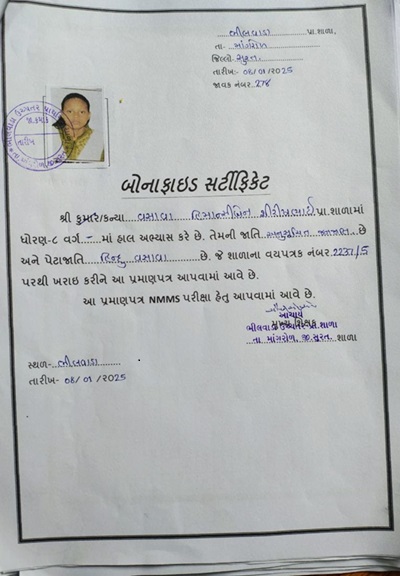 ભીલવાડા પ્રા.શાળા,
તા- માંગરોળ
જિલ્લો- સુરત
તારીખ- 08/01/2025
જાવક નંબર- 278
તારીખ
બોનાફાઇડ સર્ટીફિકેટ
શ્રી કુમાર/કન્યા વસાવા શિરીષભાઈ પ્રા.શાળામાં
ધોરણ-૮ વર્ગ - માં હાલ અભ્યાસ કરે છે. તેમની જાતિ અનુસૂચિત જનજાતિ છે
અને પેટાજાતિ હિન્દુ વસાવા છે. જે શાળાના વયપત્રક નંબર 2237/5
પરથી ખરાઇ કરીને આ પ્રમાણપત્ર આપવામાં આવે છે.
આ પ્રમાણપત્ર NMMS પરીક્ષા હેતુ આપવામાં આવે છે.
આચાર્ય
મુખ્ય શિક્ષક
ભીલવાડા ઉચ્ચતર પ્રા.શાળા
તા માંગરોળ, જી.સુરત. શાળા
સ્થળ- ભીલવાડા
તારીખ- 08/01/2025